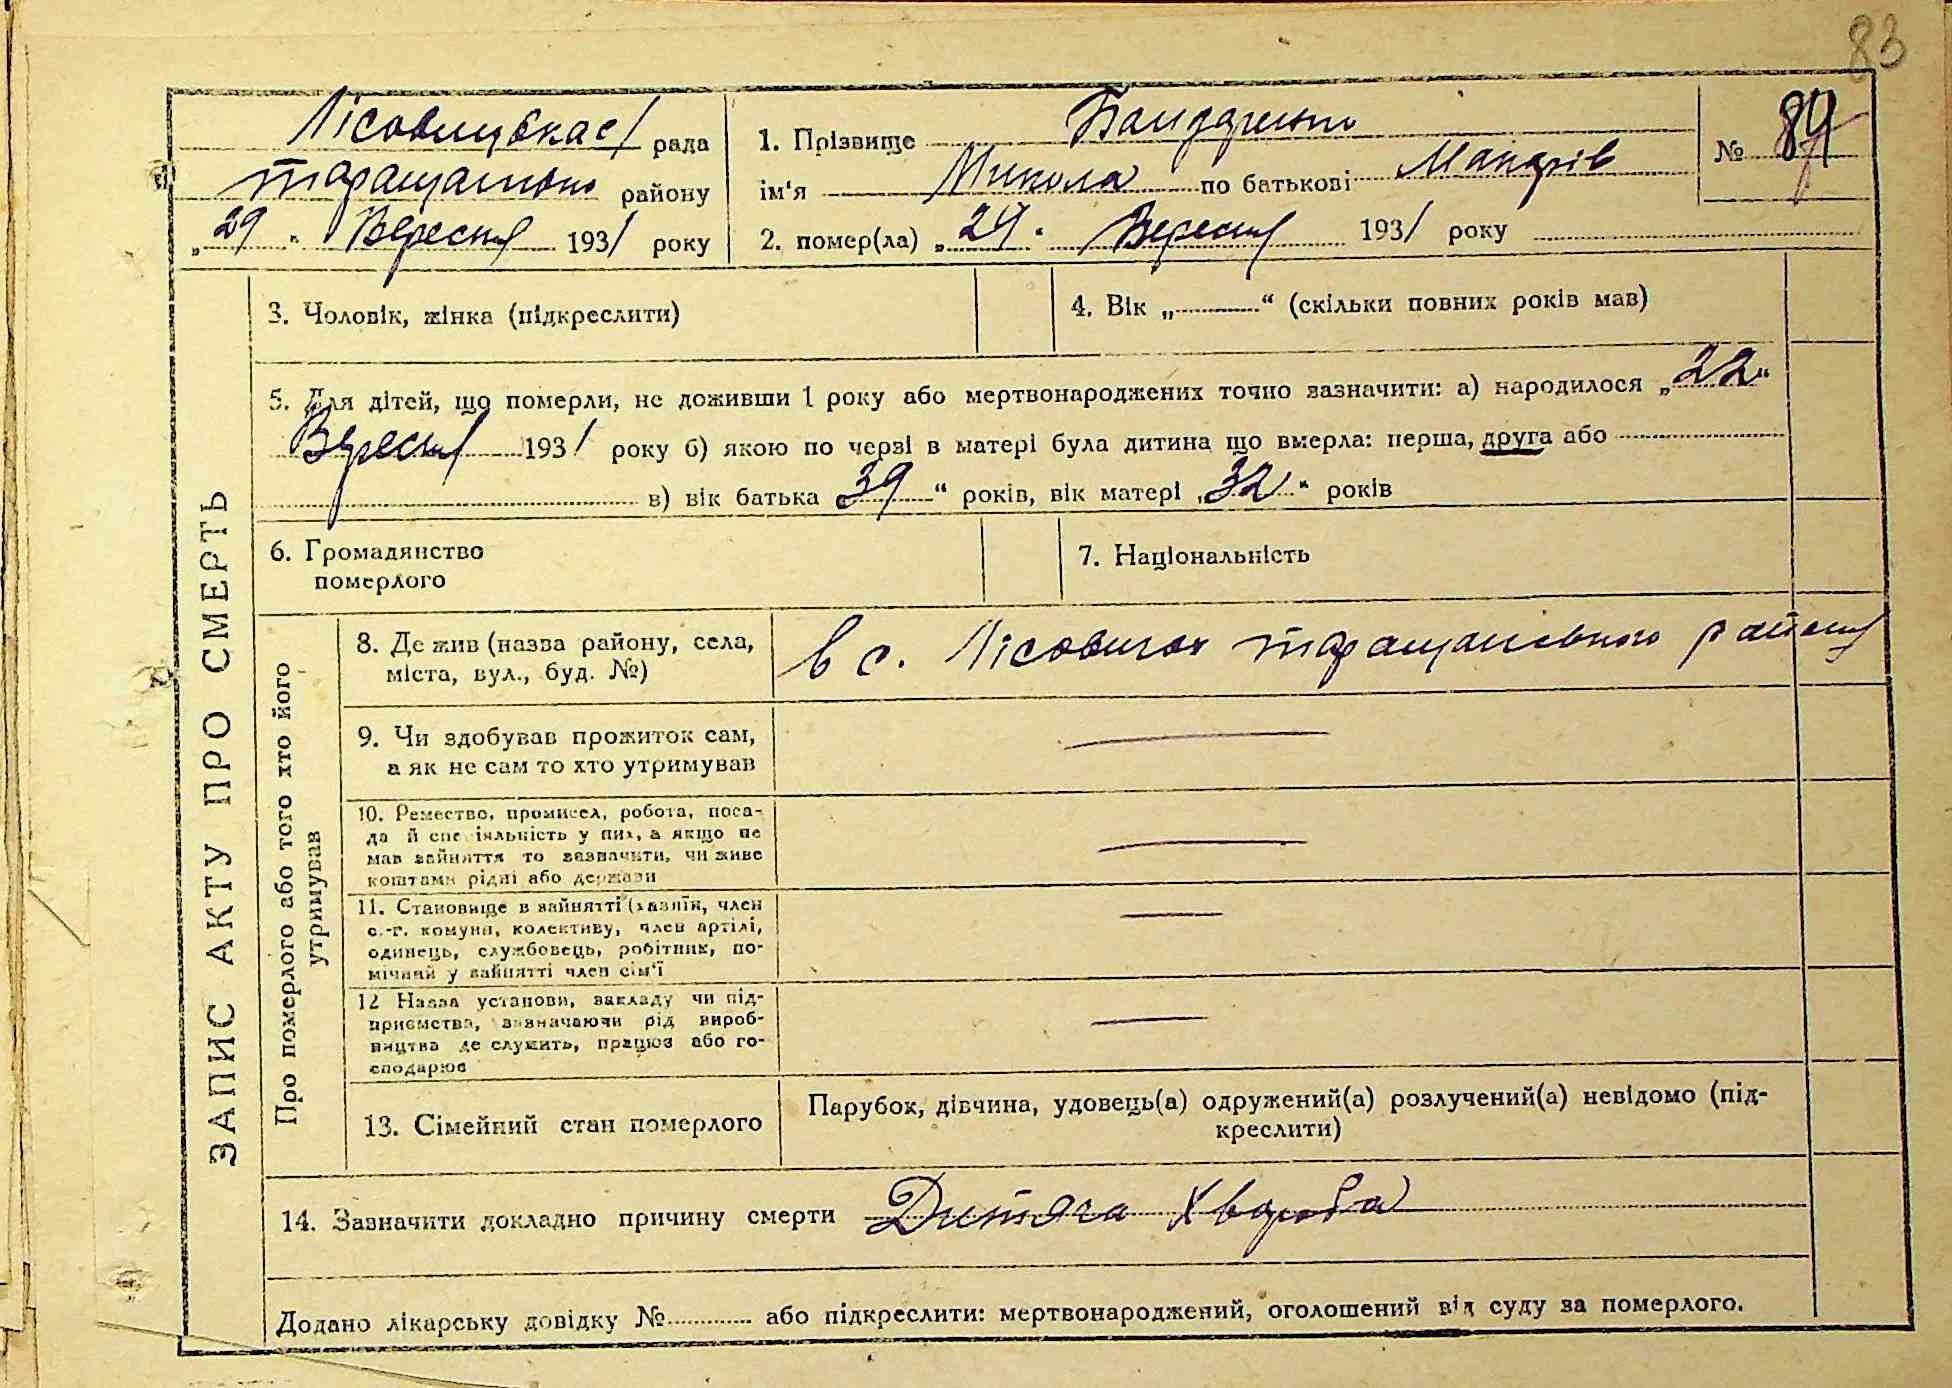 83
Лісовицька с/рада
Таращанського району
„29" Вересня 1931 року
1. Прізвище
ім'я Микола по батькові Макарів
2. помер(ла) „29" Вересня 1931 року
№
3. Чоловік, жінка (підкреслити)
4. Вік „ “ (скільки повних років мав)
5. Для дітей, що померли, не доживши 1 року або мертвонароджених точно зазначити: а) народилося „22"
Вересня 1931 року б) якою по черзі в матері була дитина що вмерла: перша, друга або
в) вік батька „39“ років, вік матері „32" років
6. Громадянство
померлого
7. Національність
ЗАПИС АКТУ ПРО СМЕРТЬ
Про померлого або того хто його
утримував
8. Де жив (назва району, села,
міста, вул., буд. №)
в с. Лісовичах Таращанського району
9. Чи здобував прожиток сам,
а як не сам то хто утримував
10. Ремество, промисел, робота, поса-
да й спеціяльність у них, а якщо не
мав зайняття то зазначити, чи живе
коштами рідні або держави
11. Становище в зайнятті (хазяїн, член
с.-г. комуни, колективу, член артілі,
одинець, службовець, робітник, по-
мічний у зайнятті член сім'ї
12 Назва установи, закладу чи під-
приємства, зазначаючи рід вироб-
ництва де служить, працює або го-
сподарює
13. Сімейний стан померлого
Парубок, дівчина, удовець(а) одружений(а) розлучений(а) невідомо (під-
креслити)
14. Зазначити докладно причину смерти Дитяча хвороба
Додано лікарську довідку № або підкреслити: мертвонароджений, оголошений від суду за померлого.